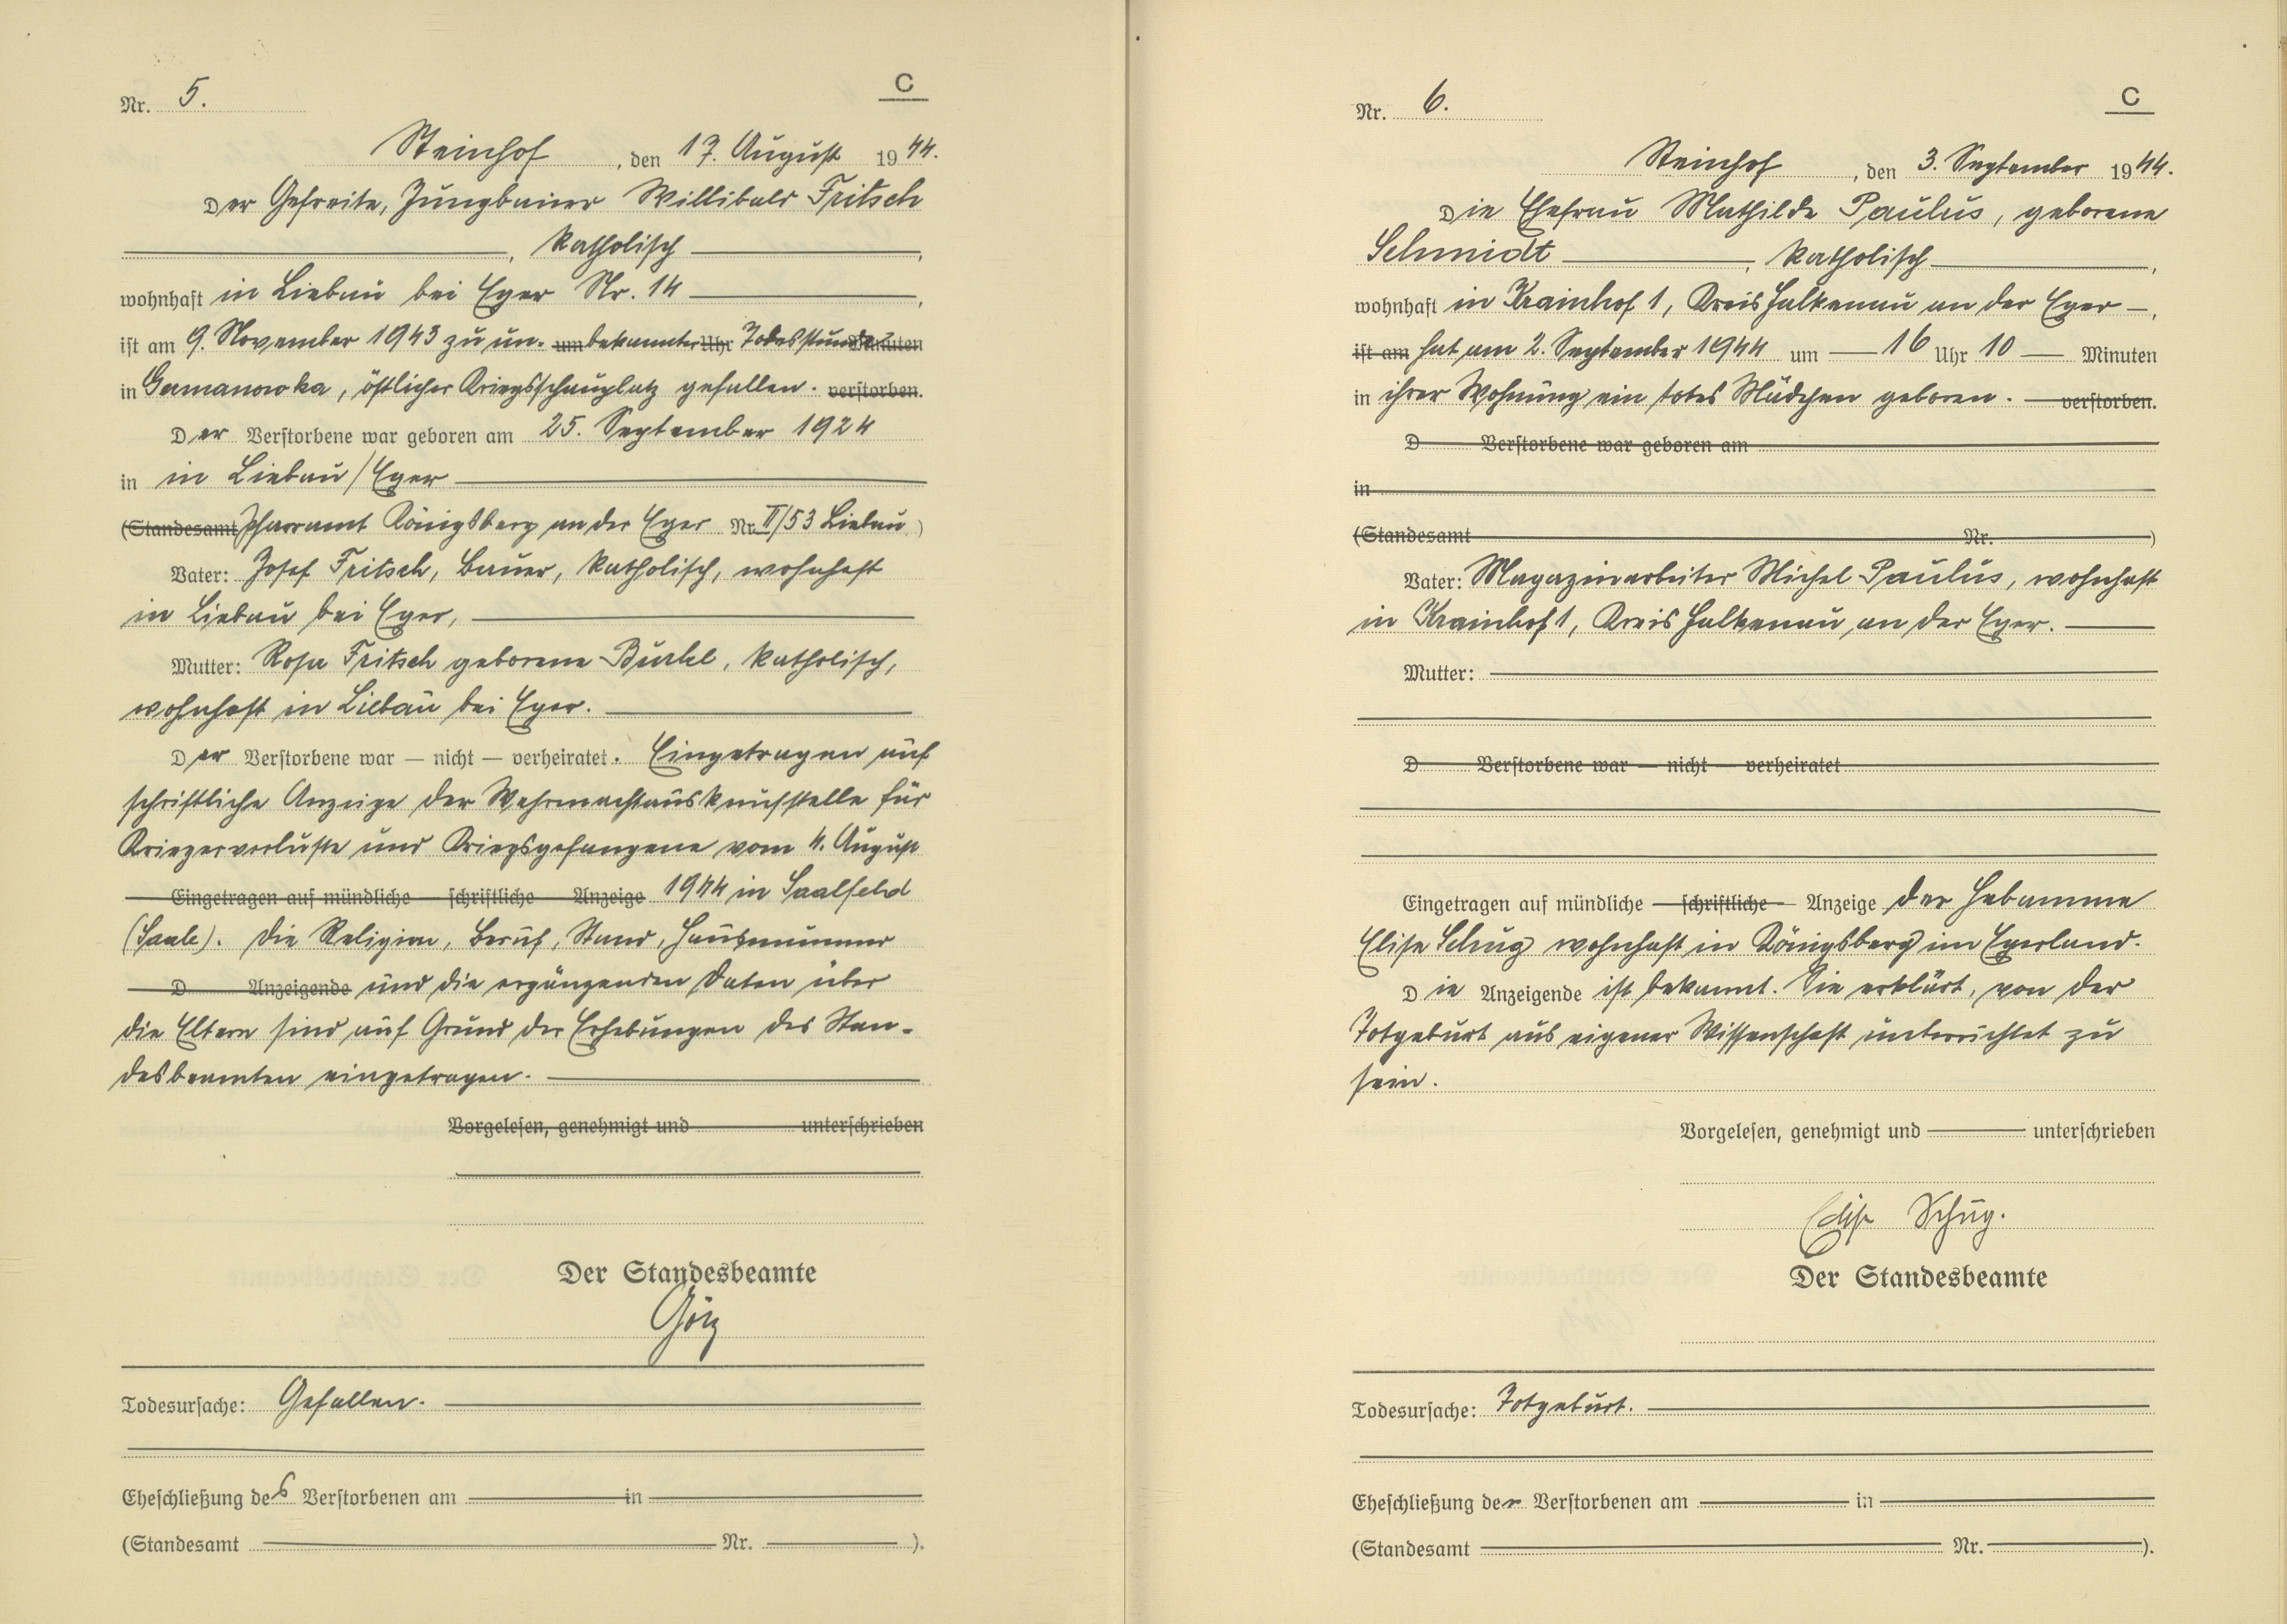 Nr. 5.
C
Steinhof, den 17. August 1944.
Der Gefreite, Jungbauer Willibald Fritsch
, katholisch,
wohnhaft in Liebau bei Eger Nr. 14,
ist am 9. November 1943 zu un- um bekannter Uhr Todesstunde Minuten
in Gamanowka, östlicher Kriegsschauplatz gefallen. verstorben.
Der Verstorbene war geboren am 25. September 1924
in in Liebau/Eger
(Standesamt Pfarramt Königsberg an der Eger Nr. II/53 Liebau)
Vater: Josef Fritsch, Bauer, katholisch, wohnhaft
in Liebau bei Eger,
Mutter: Rosa Fritsch geborene Burkl, katholisch,
wohnhaft in Liebau bei Eger.
Der Verstorbene war — nicht — verheiratet. Eingetragen auf
schriftliche Anzeige der Wehrmachtauskunftstelle für
Kriegerverluste und Kriegsgefangene vom 4. August
Eingetragen auf mündliche — schriftliche — Anzeige 1944 in Saalfeld
(Saale). Die Religion, Beruf, Stand, Hausnummer
D Anzeigende und die ergänzenden Daten über
die Eltern sind auf Grund der Erhebungen des Stan-
desbeamten eingetragen.
Vorgelesen, genehmigt und unterschrieben
Der Standesbeamte
Görz
Todesursache: Gefallen.
Eheschließung des Verstorbenen am in
(Standesamt Nr. ).
Nr. 6.
C
Steinhof, den 3. September 1944.
Die Ehefrau Mathilde Paulus, geborene
Schmidt, katholisch,
wohnhaft in Krainhof 1, Kreis Falkenau an der Eger,
ist am hat am 2. September 1944 um 16 Uhr 10 Minuten
in ihrer Wohnung ein totes Mädchen geboren. verstorben.
D Verstorbene war geboren am
in
(Standesamt Nr. )
Vater: Magazinarbeiter Michel Paulus, wohnhaft
in Krainhof 1, Kreis Falkenau an der Eger.
Mutter:
D Verstorbene war — nicht — verheiratet
Eingetragen auf mündliche — schriftliche — Anzeige der Hebamme
Elise Schug wohnhaft in Königsberg im Egerland.
Die Anzeigende ist bekannt. Sie erklärt, von der
Totgeburt aus eigener Wissenschaft unterrichtet zu
sein.
Vorgelesen, genehmigt und unterschrieben
Elise Schug.
Der Standesbeamte
Todesursache: Totgeburt.
Eheschließung der Verstorbenen am in
(Standesamt Nr. ).